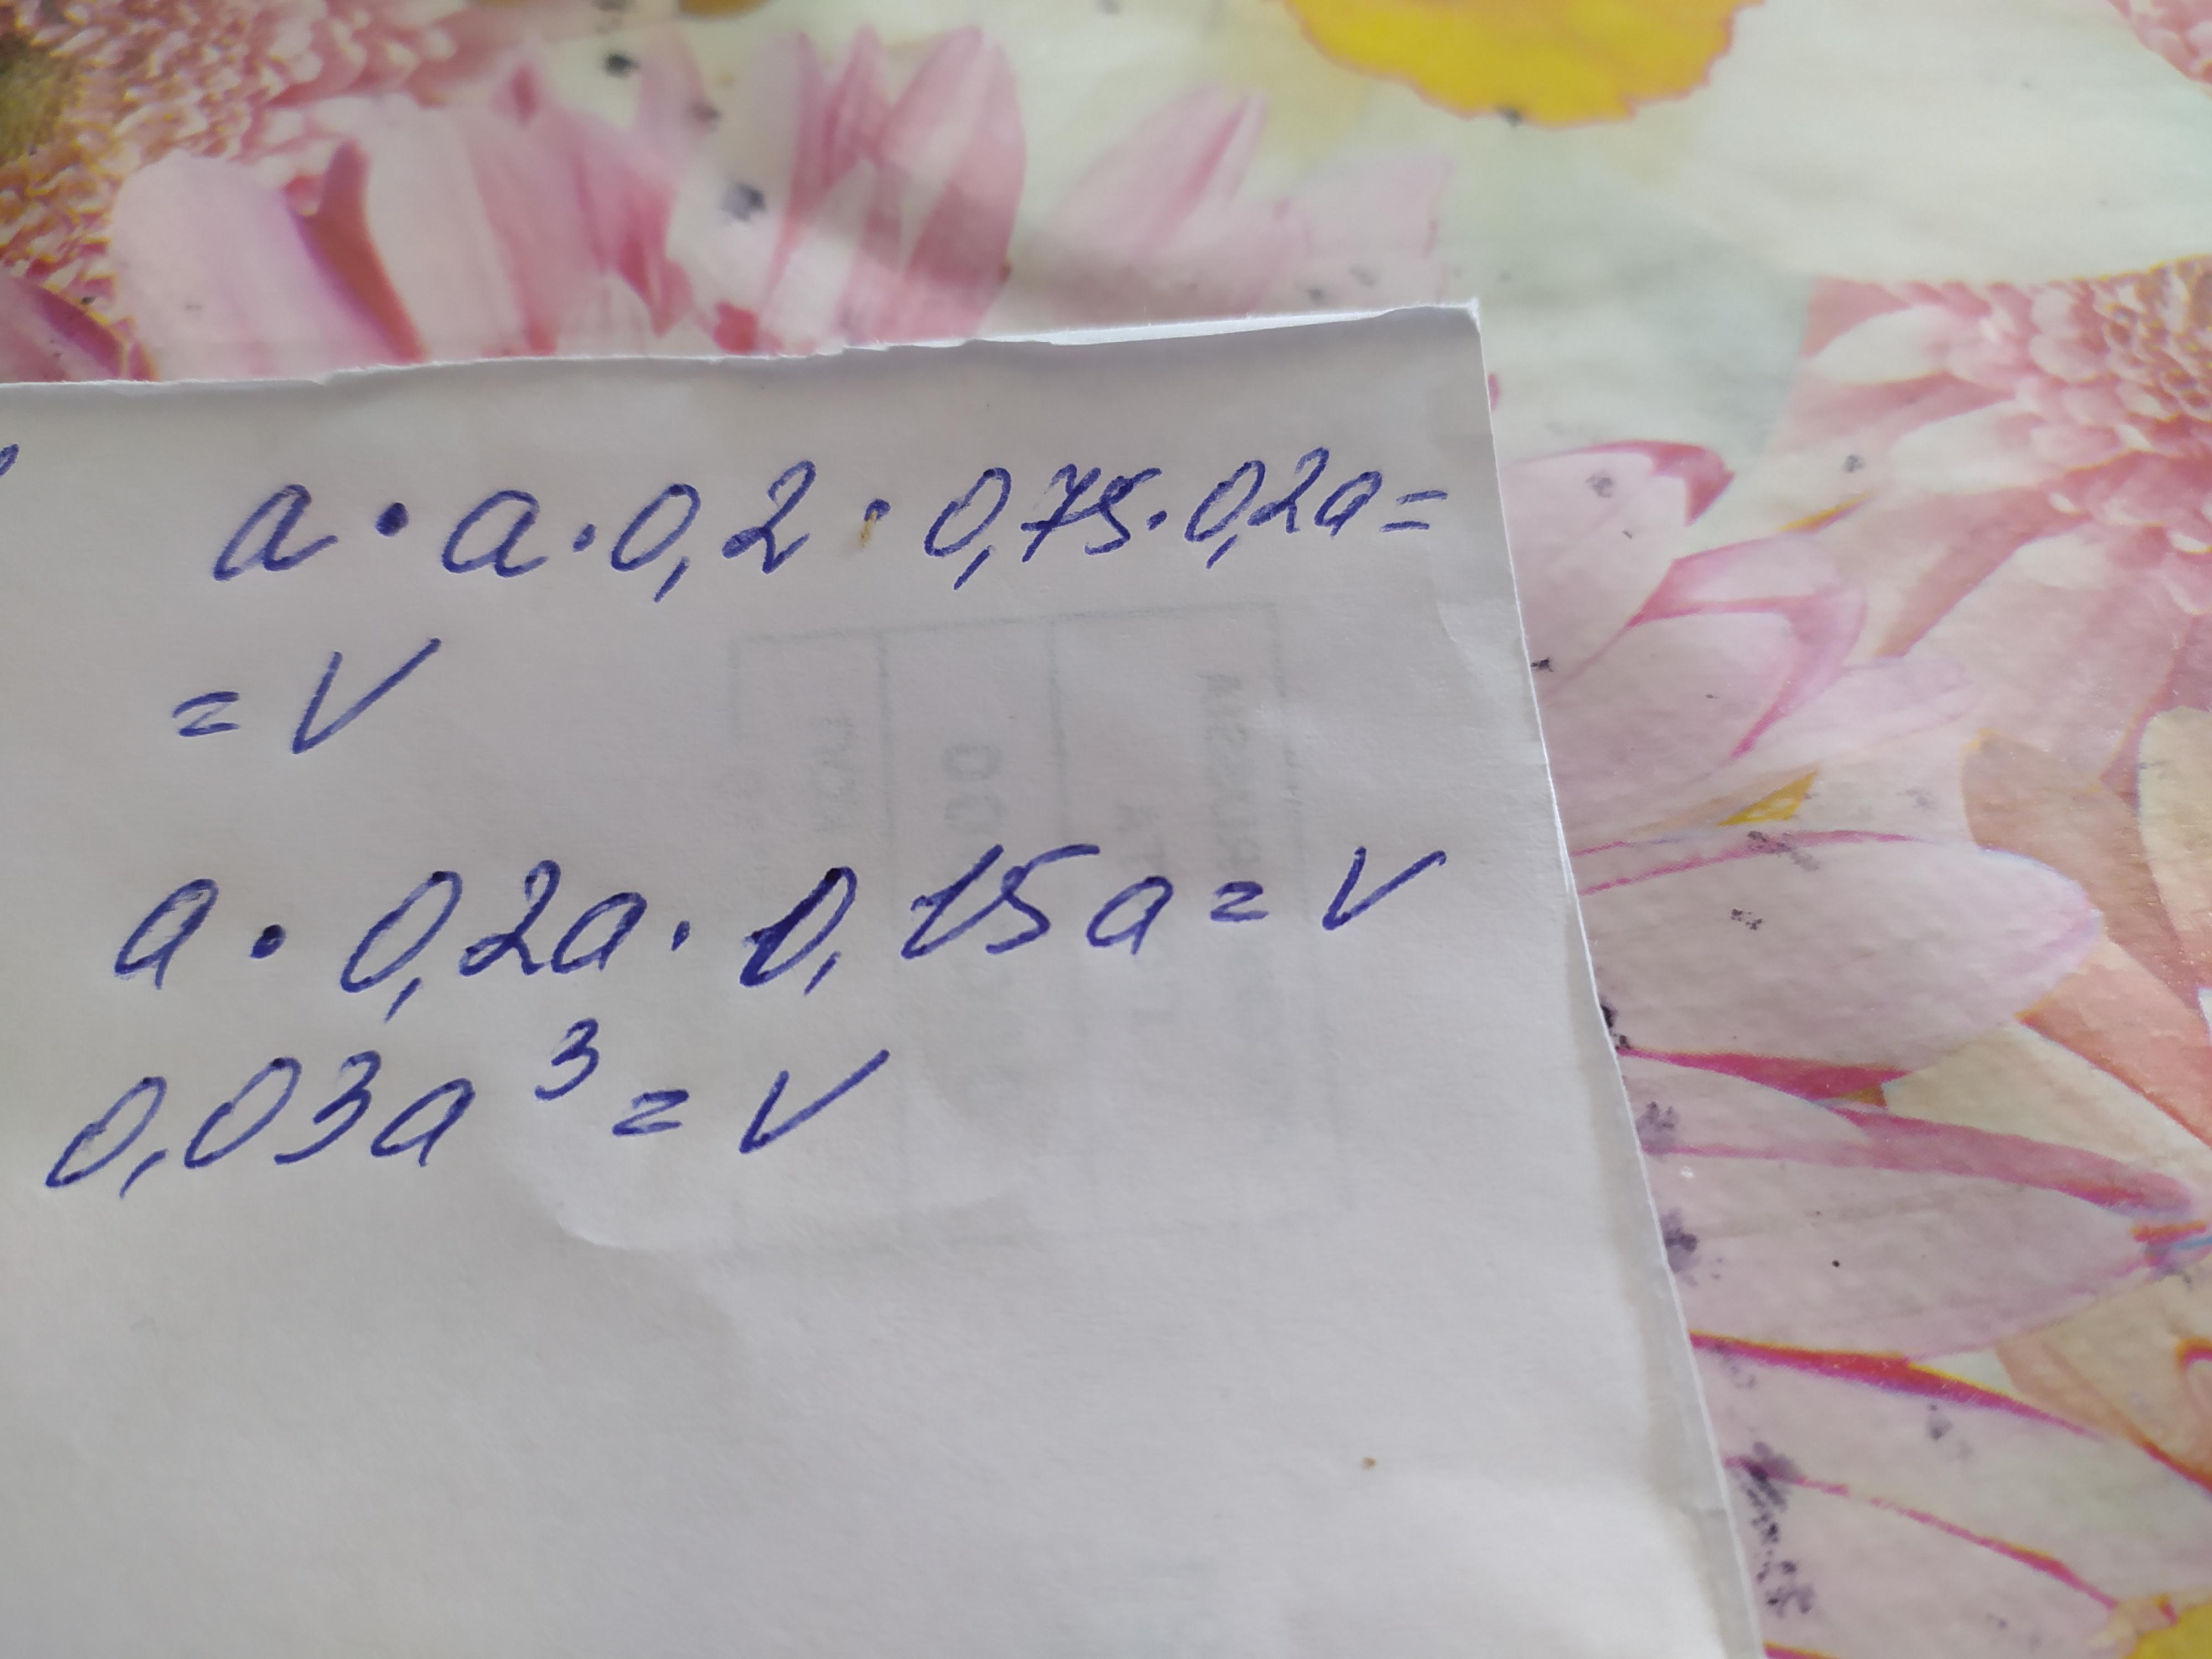 a · a · 0,2 · 0,75 · 0,2a =
= V
a · 0,2a · 0,15a = V
0,03a³ = V